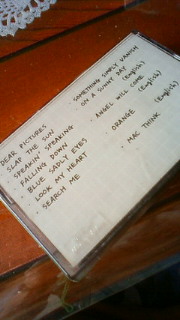 DEAR PICTURES
SLAP THE SUN
SPEAKIN' SPEAKING
FALLING DOWN
BLUE SADLY EYES
· LOOK MY HEART
· SEARCH ME
SOMETHING SIMPLY VANISH
ON A SUNNY DAY
(English)
· ANGEL WILL COME
(English)
· ORANGE
(English)
· MAC THINK